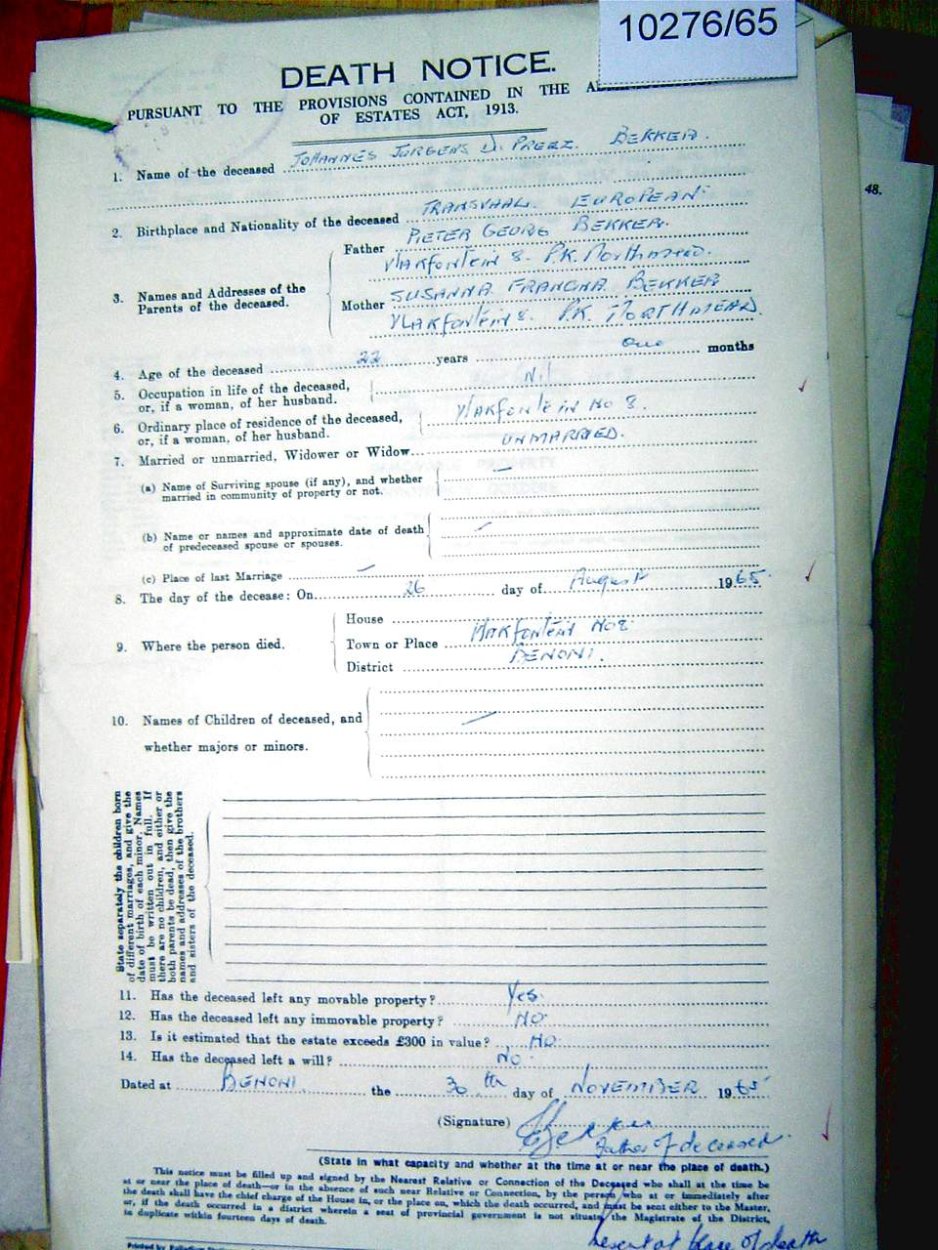 10276/65
DEATH NOTICE.
PURSUANT TO THE PROVISIONS CONTAINED IN THE
OF ESTATES ACT, 1913.
48.
1. Name of the deceased JOHANNES JURGENS D. PREEZ. BEKKER.
2. Birthplace and Nationality of the deceased TRANSVAAL. EUROPEAN
3. Names and Addresses of the Parents of the deceased.
Father PIETER GEORG BEKKER.
Vlakfontein 8. P.K. Northmead.
Mother SUSANNA FRANCINA BEKKER
VLAKFONTEIN 8. P.K. NORTHMEAD.
4. Age of the deceased 22 years one months
5. Occupation in life of the deceased, Nil
or, if a woman, of her husband.
6. Ordinary place of residence of the deceased, Vlakfontein No 8.
or, if a woman, of her husband.
7. Married or unmarried, Widower or Widow... UNMARRIED.
(a) Name of Surviving spouse (if any), and whether
married in community of property or not.
(b) Name or names and approximate date of death
of predeceased spouse or spouses.
(c) Place of last Marriage
8. The day of the decease: On 26 day of August 1965.
9. Where the person died.
House
Town or Place Vlakfontein No 8
District BENONI.
10. Names of Children of deceased, and
whether majors or minors.
State separately the children born
of different marriages, and give the
date of birth of each minor. Names
must be written out in full. If
there are no children, and either or
both parents be dead, then give the
names and addresses of the brothers
and sisters of the deceased.
11. Has the deceased left any movable property? Yes.
12. Has the deceased left any immovable property? NO
13. Is it estimated that the estate exceeds £300 in value? NO
14. Has the deceased left a will? NO
Dated at BENONI. the 30th day of NOVEMBER 1965
(Signature)
Father of deceased.
(State in what capacity and whether at the time at or near the place of death.)
This notice must be filled up and signed by the Nearest Relative or Connection of the Deceased who shall at the time be
at or near the place of death—or in the absence of such near Relative or Connection, by the person who at or immediately after
the death shall have the chief charge of the House in, or the place on, which the death occurred, and must be sent either to the Master,
or, if the death occurred in a district wherein a seat of provincial government is not situate, the Magistrate of the District,
in duplicate within fourteen days of death.
at place of death
Printed by